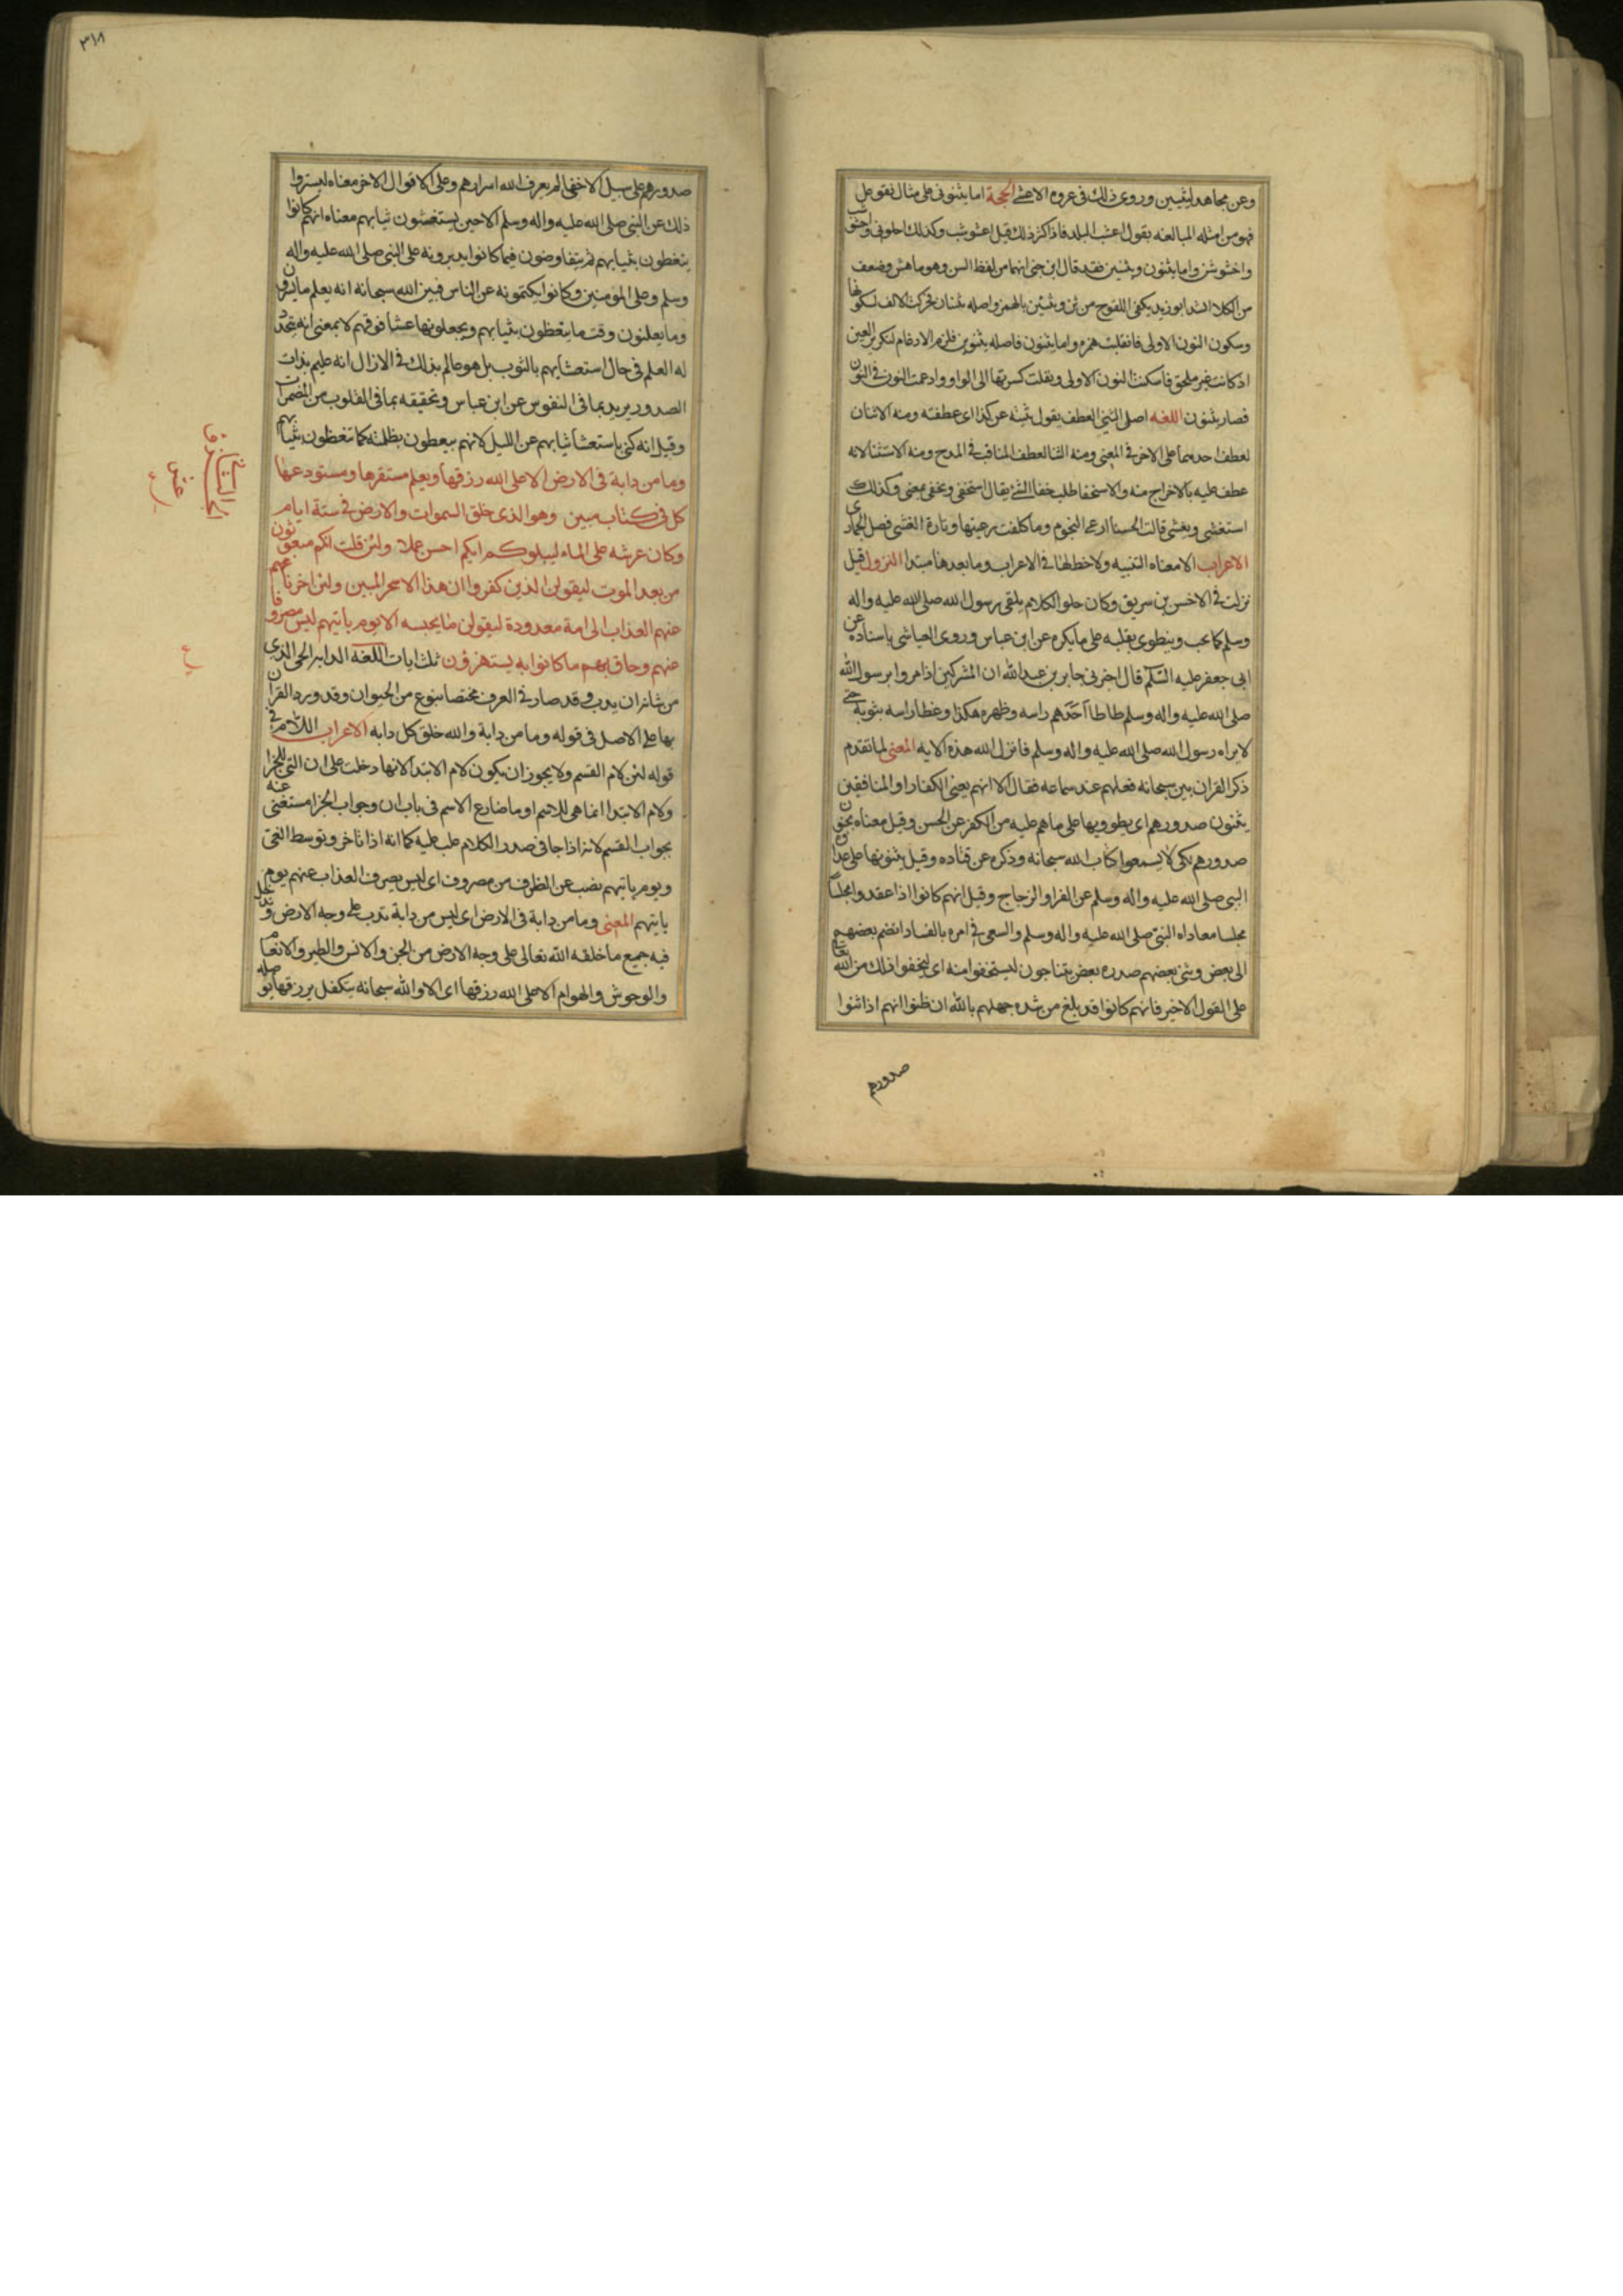 وعن مجاهد ليثنين وروى ذلك فى عروه الاعشى الحجة اما يثنونى على مثال تفوعل
فهو من امثله المبالعنه يقول اعشب البلد فاذا كثر ذلك قيل اعشوشب وكذلك احلولى واخشو
واخشوشن واما يثنون ويثنين فقد قال ابن جنى انهما من لفظ الثن وهو ما هش وضعف
من الكلاء انشد ابو زيد يكفى اللقوح من ثن ويثنئن بالهمز واصله يثنان فحركت الالف لسكونها
وسكون النون الاولى فانقلبت همزه واما يثنون فاصله يثنونن فلزم الادغام لتكرير العين
اذ كانت غير ملحق فاسكنت النون الاولى ونقلت كسرتها الى الواو وادغمت النون فى النون
فصار يثنون اللغه اصل الثنى العطف يقول ثنيته عن كذا اى عطفته ومنه الاثنان
لعطف احدهما على الاخر فى المعنى ومنه الثنا لعطف المناقب فى المدح ومنه الاستثنا لانه
عطف عليه بالاخراج منه والاستخفا طلب خفا الشئ يقال استخفى وتخفى بمعنى وكذلك
استغشى وتغشى قالت الخنسا ارعى النجوم وما كلفت رعيتها وتارة اتغشى فضل اطمارى
الاعراب الا معناه التنبيه ولا حظ لها فى الاعراب وما بعدها مبتدا النزول قيل
نزلت فى الاخنس بن سريق وكان حلو الكلام يلقى رسول الله صلى الله عليه واله
وسلم بما يحب وينطوى بقلبه على ما يكره عن ابن عباس وروى العياشى باسناده عن
ابى جعفر عليه السلم قال اخبرنى جابر بن عبد الله ان المشركين اذا مروا برسول الله
صلى الله عليه واله وسلم طاطا احدهم راسه وظهره هكذا وغطا راسه بثوبه حتى
لا يراه رسول الله صلى الله عليه واله وسلم فانزل الله هذه الايه المعنى لما تقدم
ذكر القران بين سبحانه فعلهم عند سماعه فقال الا انهم يعنى الكفار او المنافقين
يثنون صدورهم اى يطوونها على ما هم عليه من الكفر عن الحسن وقيل معناه يحنون
صدورهم لكى لا يسمعوا كتاب الله سبحانه وذكره عن قتاده وقيل يثنونها على عداوة
النبى صلى الله عليه واله وسلم عن الفرا والزجاج وقيل انهم كانوا اذا عقدوا مجلسا
مجلسا معاداه النبى صلى الله عليه واله وسلم والسعى فى امره بالفساد انضم بعضهم
الى بعض وثنى بعضهم صدره بعض يتناجون ليستخفوا منه اى ليخفوا ذلك من الله تعالى
على القول الاخير فانهم كانوا قد بلغ من شده جهلهم بالله ان ظنوا انهم اذا ثنوا
صدورهم
٣١٨
صدورهم على سبيل الاخفا لم يعرف الله اسرارهم وعلى الاقوال الاخر معناه ليستروا
ذلك عن النبى صلى الله عليه واله وسلم الا حين يستغشون ثيابهم معناه انهم كانوا
يتغطون بثيابهم ثم يتفاوضون فيما كانوا يدبرونه على النبى صلى الله عليه واله
وسلم وعلى المومنين وكانوا يكتمونه عن الناس فبين الله سبحانه انه يعلم ما يسرون
وما يعلنون وقت ما يتغطون بثيابهم ويجعلونها غشا فوقهم لا بمعنى انه يتجدد
له العلم فى حال استغشائهم بالثوب بل هو عالم بذلك فى الازال انه عليم بذات
الصدور يريد بما فى النفوس عن ابن عباس وتحقيقه بما فى القلوب من المضمرات
وقيل انه كنى باستغشا ثيابهم عن الليل لانهم يتغطون بظلمته كما تتغطون بثيابهم
وما من دابة فى الارض الا على الله رزقها ويعلم مستقرها ومستودعها
كل فى كتاب مبين وهو الذى خلق السموات والارض فى ستة ايام
وكان عرشه على الماء ليبلوكم ايكم احسن عملا ولئن قلت انكم مبعوثون
من بعد الموت ليقولن الذين كفروا ان هذا الا سحر مبين ولئن اخرنا عنهم
عنهم العذاب الى امة معدودة ليقولن ما يحبسه الا يوم ياتيهم ليس مصروفا
عنهم وحاق بهم ما كانوا به يستهزؤن ثلث ايات اللغه الدابه الحى الذى
من شانه ان يدب وقد صار فى العرف مختصا بنوع من الحيوان وقد ورد القران
بها على الاصل فى قوله وما من دابة والله خلق كل دابه الاعراب اللام فى
قوله لئن لام القسم ولا يجوز ان يكون لام الابتدا لانها دخلت على ان التى للجزا
ولام الابتدا انما هى للاسم او ما ضارع الاسم فى باب ان وجواب الجزا مستغنى عنه
بجواب القسم لانه اذا جا فى صدر الكلام غلب عليه كما انه اذا تاخر وتوسط الغى
ويوم ياتيهم نصب عن الظرف من مصروف اى ليس يصرف العذاب عنهم يوم
ياتيهم المعنى وما من دابة فى الارض اى ليس من دابة تدب على وجه الارض وتدخل
فيه جميع ما خلقه الله تعالى على وجه الارض من الجن والانس والطير والانعام
والوحوش والهوام الا على الله رزقها اى الا والله سبحانه يتكفل برزقها